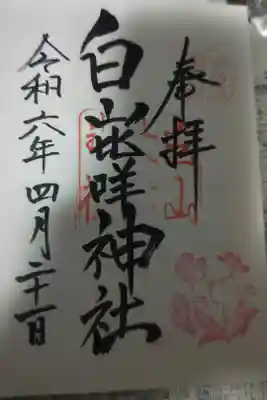 奉拝
白崑咩神社
令和六年四月二十一日